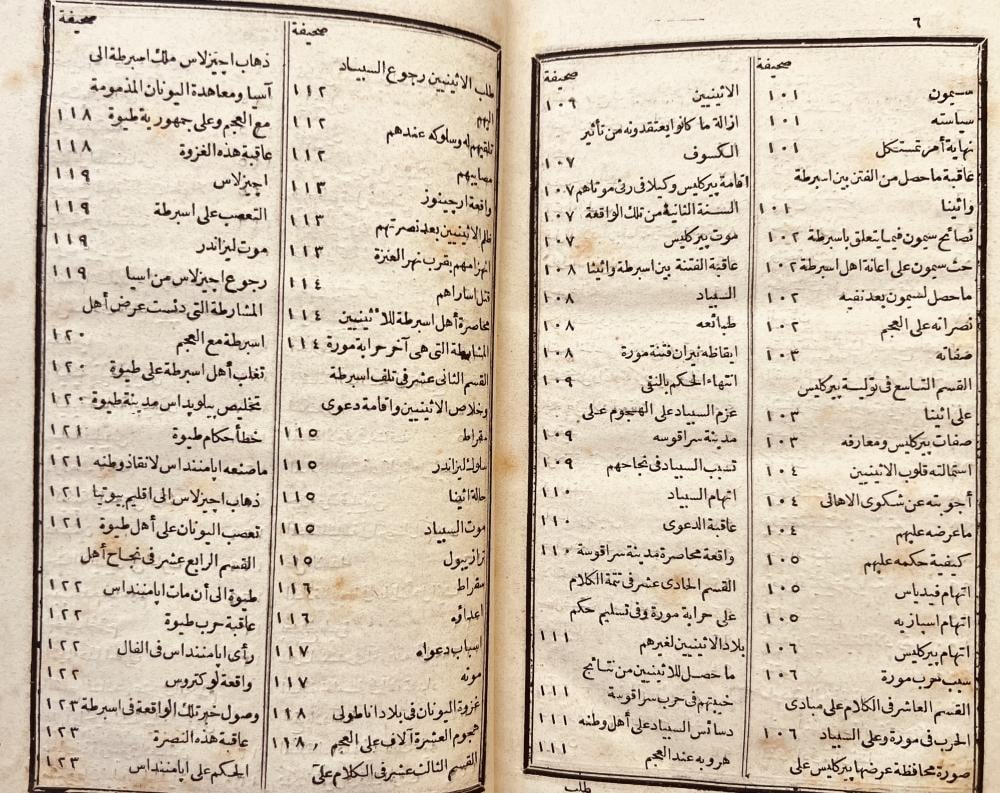 ٦
صحيفة
سيمون ١٠١
سياسته ١٠١
نهاية أمر تمستكل ١٠١
عاقبة ما حصل من الفتن بين اسبرطة
واثينا ١٠١
نصائح سيمون فيما يتعلق باسبرطة ١٠٢
حث سيمون على اعانة اهل اسبرطة ١٠٢
ما حصل لسيمون بعد نفيه ١٠٢
نصراته على العجم ١٠٢
صفاته ١٠٣
القسم التاسع فى تولية پيركليس
على اثينا ١٠٣
صفات پيركليس ومعارفه ١٠٣
استمالته قلوب الاثينيين ١٠٤
أجوبته عن شكوى الاهالى ١٠٤
ما عرضه عليهم ١٠٤
كيفية حكمه عليهم ١٠٥
اتهام فيدياس ١٠٥
اتهام اسپازيه ١٠٥
اتهام پيركليس ١٠٦
سبب حرب مورة ١٠٦
القسم العاشر فى الكلام على مبادى
الحرب فى مورة وعلى السبياد ١٠٦
صورة محافظة عرضها پيركليس على
صحيفة
الاثينيين ١٠٩
ازالة ما كانوا يعتقدونه من تأثير
الكسوف ١٠٧
اقامة پيركليس وكيلا فى رثى موتاهم ١٠٧
السنة الثانية من تلك الواقعة ١٠٧
موت پيركليس ١٠٧
عاقبة الفتنة بين اسبرطة واثينا ١٠٨
السبياد ١٠٨
طبائعه ١٠٨
ايقاظه نيران فتنة مورة ١٠٨
انتهاء الحكم بالنفى ١٠٩
عزم السبياد على الهجوم على
مدينة سراقوسه ١٠٩
تسبب السبياد فى نجاحهم ١٠٩
اتهام السبياد ١١٠
عاقبة الدعوى ١١٠
واقعة محاصرة مدينة سراقوسة ١١٠
القسم الحادى عشر فى تتمة الكلام
على حرابة مورة وفى تسليم حكم
بلاد الاثينيين لغيرهم ١١١
ما حصل للاثينيين من نتائج
خيبتهم فى حرب سراقوسة ١١١
دسائس السبياد على أهل وطنه ١١١
هروبه عند العجم ١١١
طلب
صحيفة
طلب الاثينيين رجوع السبياد
اليهم ١١٢
تلقيهم له وسلوكه عندهم ١١٢
مصايبهم ١١٢
واقعة ارجينوز ١١٣
ظلم الاثينيين بعد نصرتهم ١١٣
انهزامهم بقرب نهر العنزة ١١٣
قتل اساراهم ١١٤
محاصرة أهل اسبرطة للاثينيين ١١٤
المشارطة التى هى آخر حرابة مورة ١١٤
القسم الثانى عشر فى تلف اسبرطة
وخلاص الاثينيين واقامة دعوى
سقراط ١١٥
سلوك ليزاندر ١١٥
حالة اثينا ١١٥
موت السبياد ١١٥
ترازيبول ١١٥
سقراط ١١٦
اعداؤه ١١٦
اسباب دعواه ١١٧
موته ١١٧
غزوة اليونان فى بلاد اناطولى ١١٨
هجوم العشرة آلاف على العجم ١١٨
القسم الثالث عشر فى الكلام على
صحيفة
ذهاب اچيزلاس ملك اسبرطة الى
آسيا ومعاهدة اليونان المذمومة
مع العجم وعلى جمهورية طيوة ١١٨
عاقبة هذه الغزوة ١١٨
اچيزلاس ١١٩
التعصب على اسبرطة ١١٩
موت ليزاندر ١١٩
رجوع اچيزلاس من اسيا ١١٩
المشارطة التى دنست عرض أهل
اسبرطة مع العجم ١٢٠
تغلب أهل اسبرطة على طيوة ١٢٠
تخليص پيلوپداس مدينة طيوة ١٢٠
خطأ حكام طيوة ١٢١
ما صنعه اپامننداس لانقاذ وطنه ١٢١
ذهاب اچيزلاس الى اقليم بيوتيا ١٢١
تعصب اليونان على أهل طيوة ١٢١
القسم الرابع عشر فى نجاح أهل
طيوة الى أن مات اپامننداس ١٢٢
عاقبة حرب طيوة ١٢٢
رأى اپامننداس فى الفال ١٢٢
واقعة لوكتروس ١٢٢
وصول خبر تلك الواقعة فى اسبرطة ١٢٣
عاقبة هذه النصرة ١٢٣
الحكم على اپامننداس ١٢٣